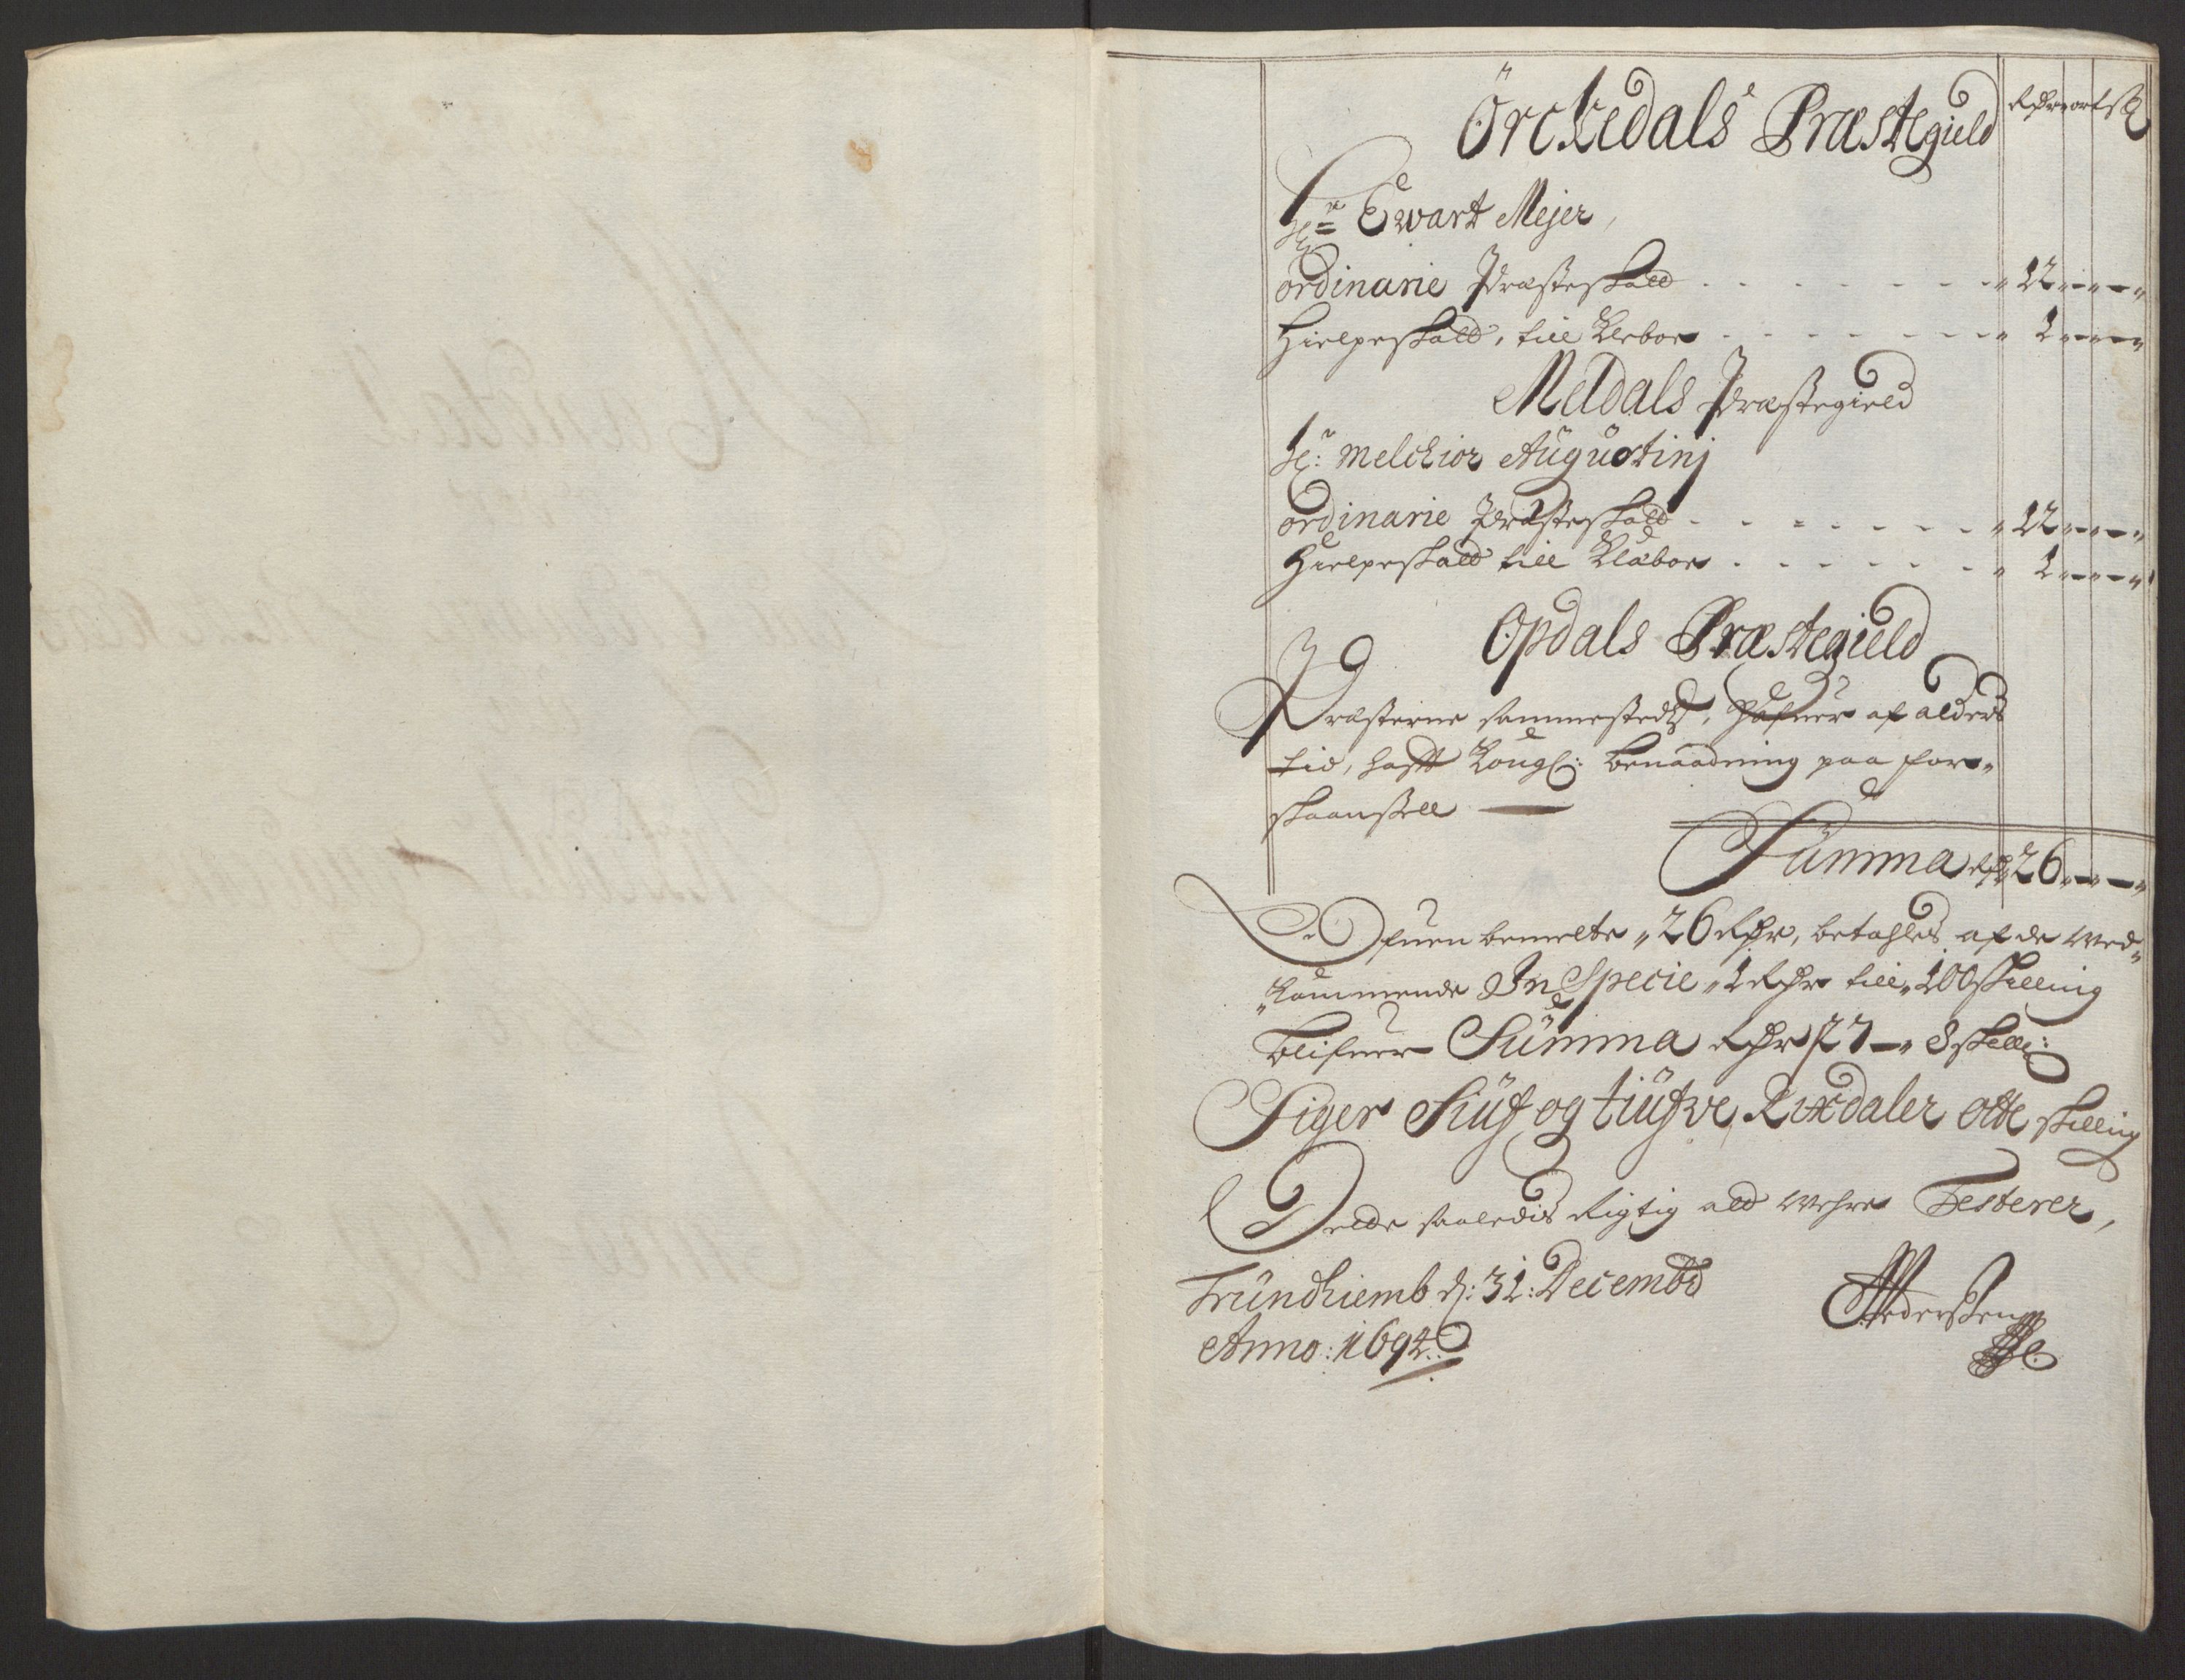 Örckedals Præstegield Rdr ort sk
Hr Ewart Mejer,
ordinarie Præsteskatt - - - - - - - „ 12„-„-„
Hielpeskatt, till Kleboe - - - - - - „ 1„-„-„
Meldals Præstegield
Hr: Melchior Augustinj
ordinarie Præsteskatt - - - - - - - „ 12„-„-„
Hielpeskatt till Klæboe - - - - - - „ 1„-„-„
Opdals Præstegield
Præsterne sammestedtz, hafuer af alders
tid, hafft Kongl: benaadning paa for„
skaansell —
Summa Rdr 26„-„-„
Ofuen bemelte „26 Rdr, betahles af de wed„
„kommende In Specie „1 Rdr till „100 skilling
blifuer Summa Rdr 27 –„ 8 skill:
Siger Siuf og tiufve Rixdaler otte skilling
Dette saaledis Rigtig att were Testerer,
Trundhiemb d: 31: Decembr
Anno: 1692